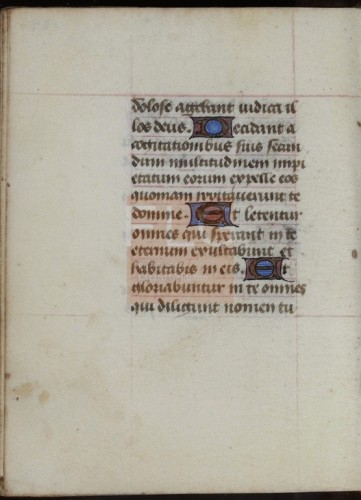 dolose agebant iudica il
los deus. Decidant a
cogitationibus suis secun
dum multitudinem impi
etatum eorum expelle eos
quoniam irritaverunt te
domine. Et letentur
omnes qui sperant in te
eternum exultabunt et
habitabis in eis. Et
gloriabuntur in te omnes
qui diligunt nomen tu